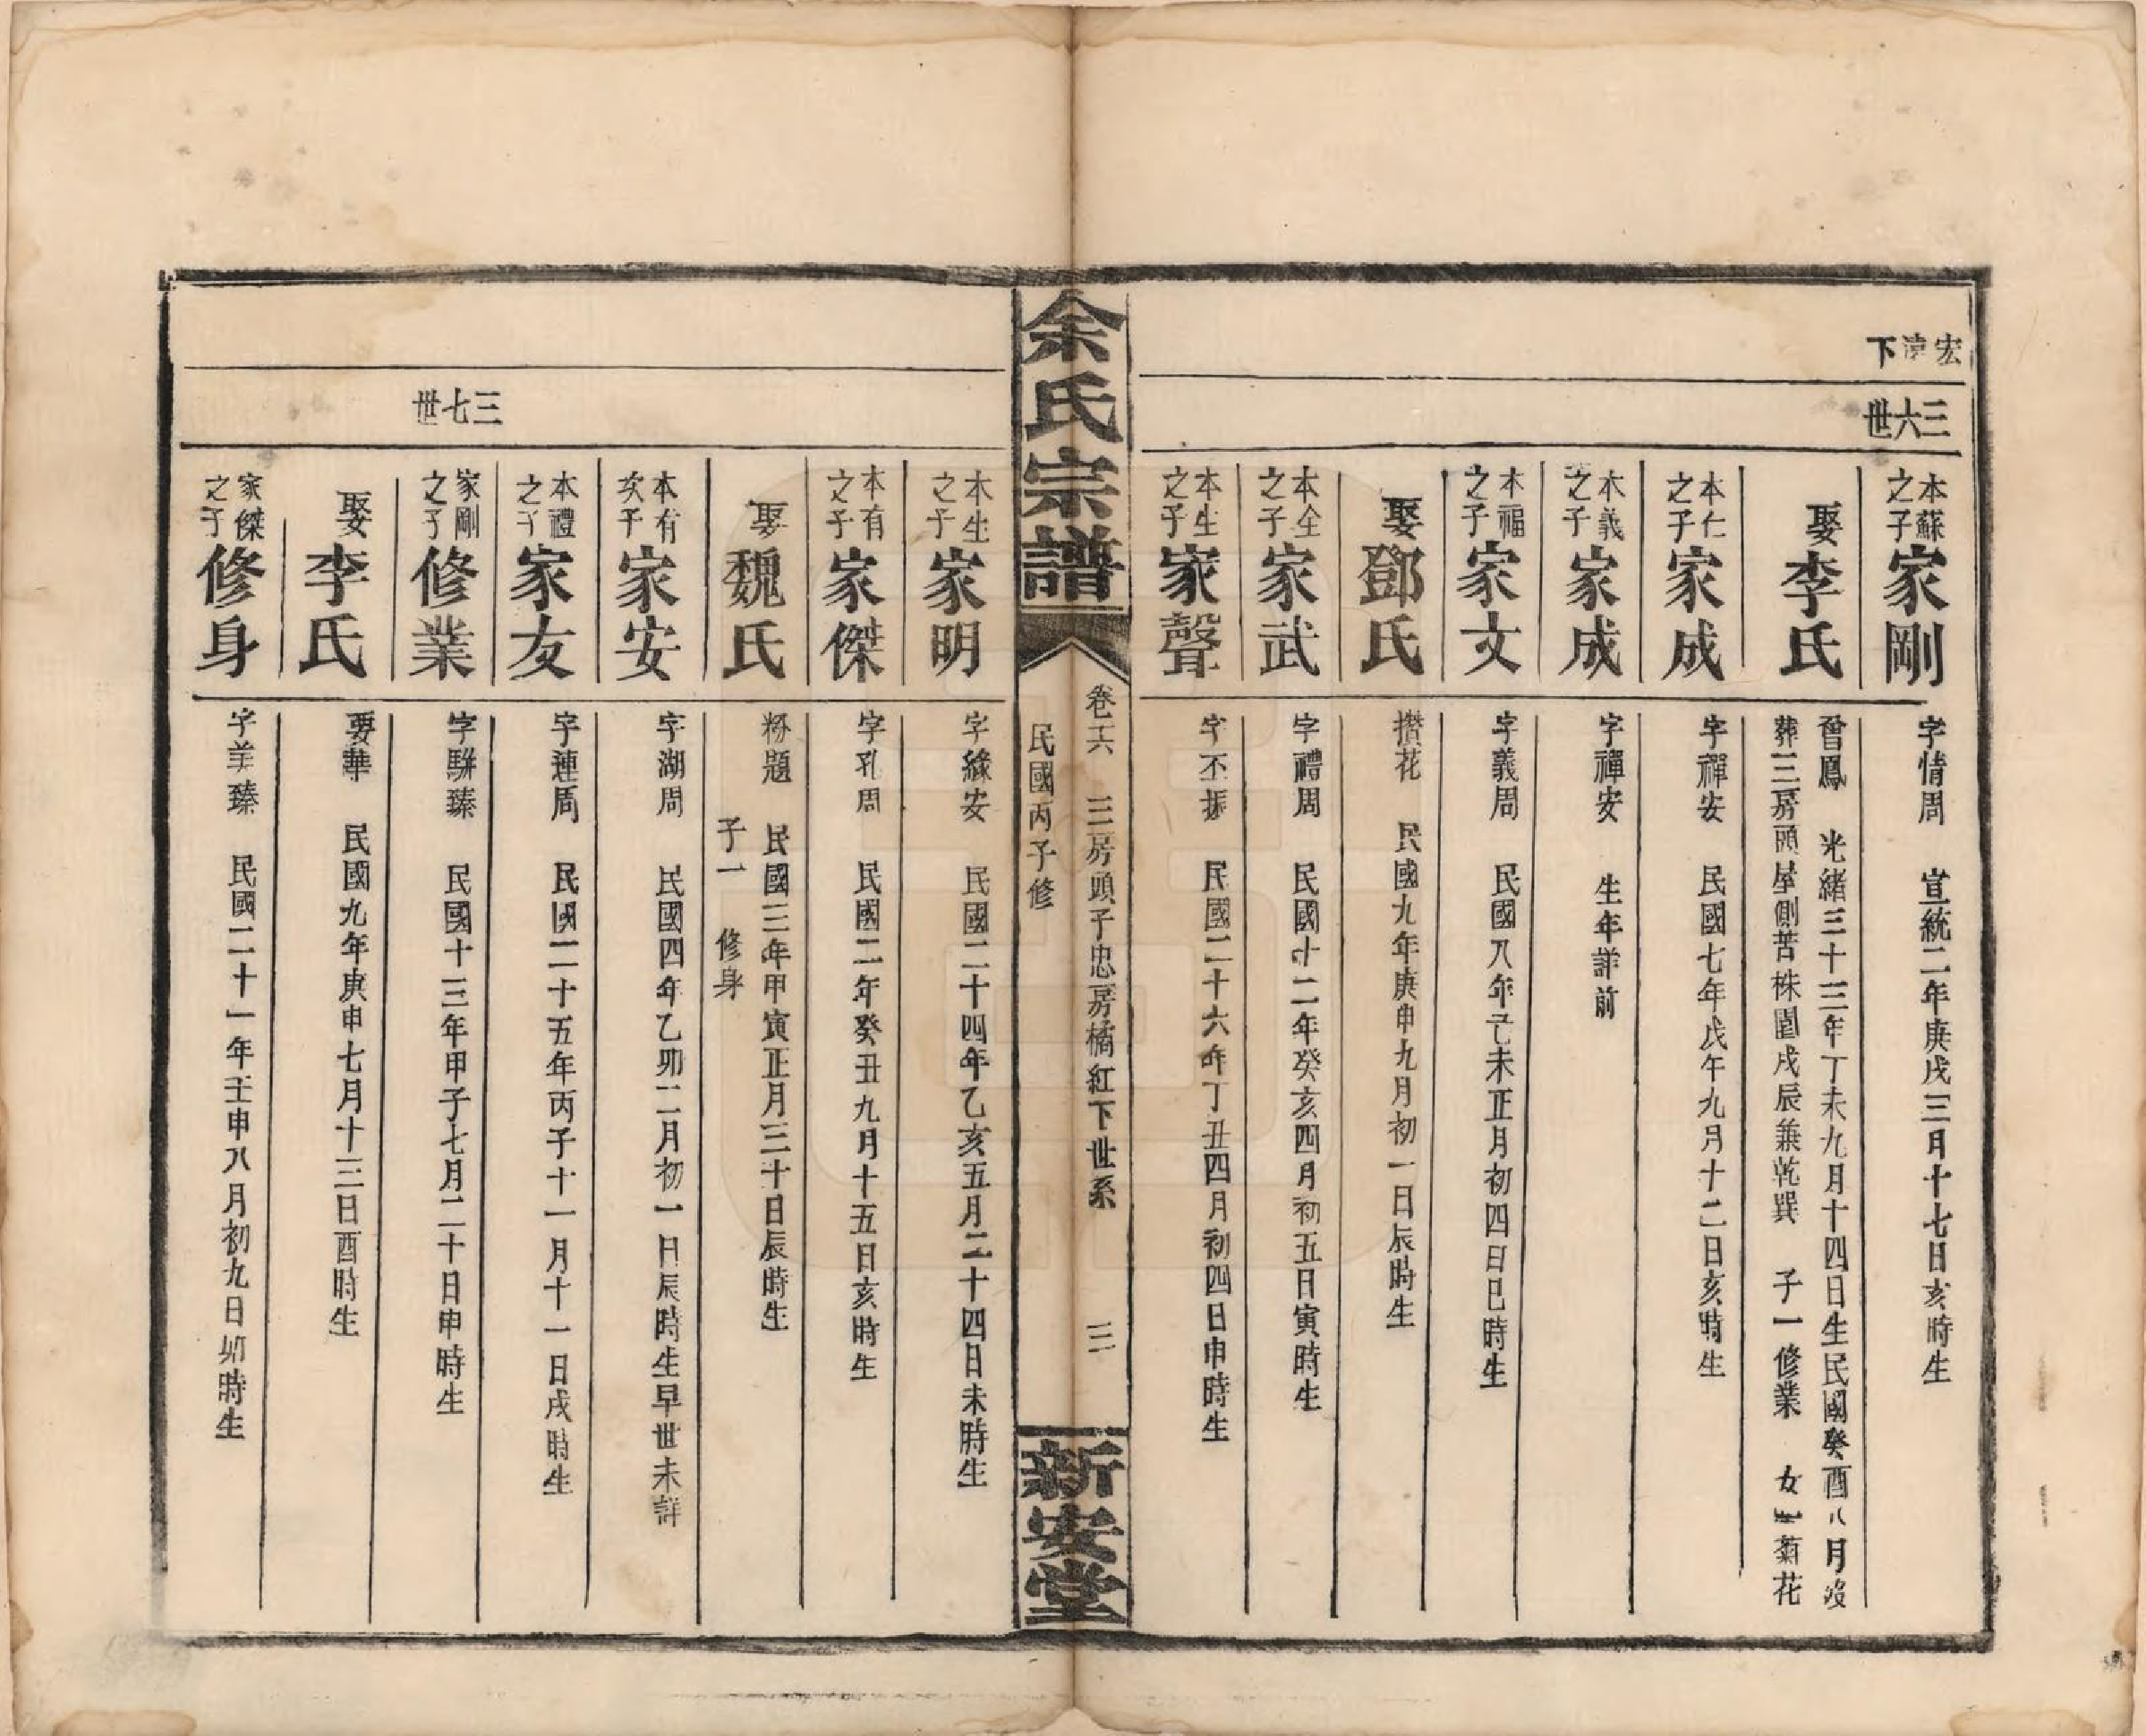 宏遠下
三六世
本蘇之子
家剛
字情周 宣統二年庚戌三月十七日亥時生
娶李氏
曾鳳 光緒三十三年丁未九月十四日生民國癸酉八月歿
葬三房頭屋側苦株園戌辰兼乾巽 子一 修業 女 菊花
本仁之子
家成
字禪安 民國七年戊午九月十二日亥時生
本義之子
家成
字禪安 生年詳前
本福之子
家文
字義周 民國八年己未正月初四日巳時生
娶鄧氏
攢花 民國九年庚申九月初一日辰時生
本全之子
家武
字禮周 民國十二年癸亥四月初五日寅時生
本生之子
家聲
字不振 民國二十六年丁丑四月初四日申時生
余氏宗譜
卷六 三房頭子忠房橘紅下世系 三
民國丙子修
新安堂
本生之子
家明
字緣安 民國二十四年乙亥五月二十四日未時生
本有之子
家傑
字孔周 民國二年癸丑九月十五日亥時生
娶魏氏
粉題 民國三年甲寅正月三十日辰時生
子一 修身
本有次子
家安
字湖周 民國四年乙卯二月初一日辰時生早世未詳
本禮之子
家友
字連周 民國二十五年丙子十一月十一日戌時生
三七世
家剛之子
修業
字騈臻 民國十三年甲子七月二十日申時生
娶李氏
要華 民國九年庚申七月十三日酉時生
家傑之子
修身
字美臻 民國二十一年壬申八月初九日卯時生